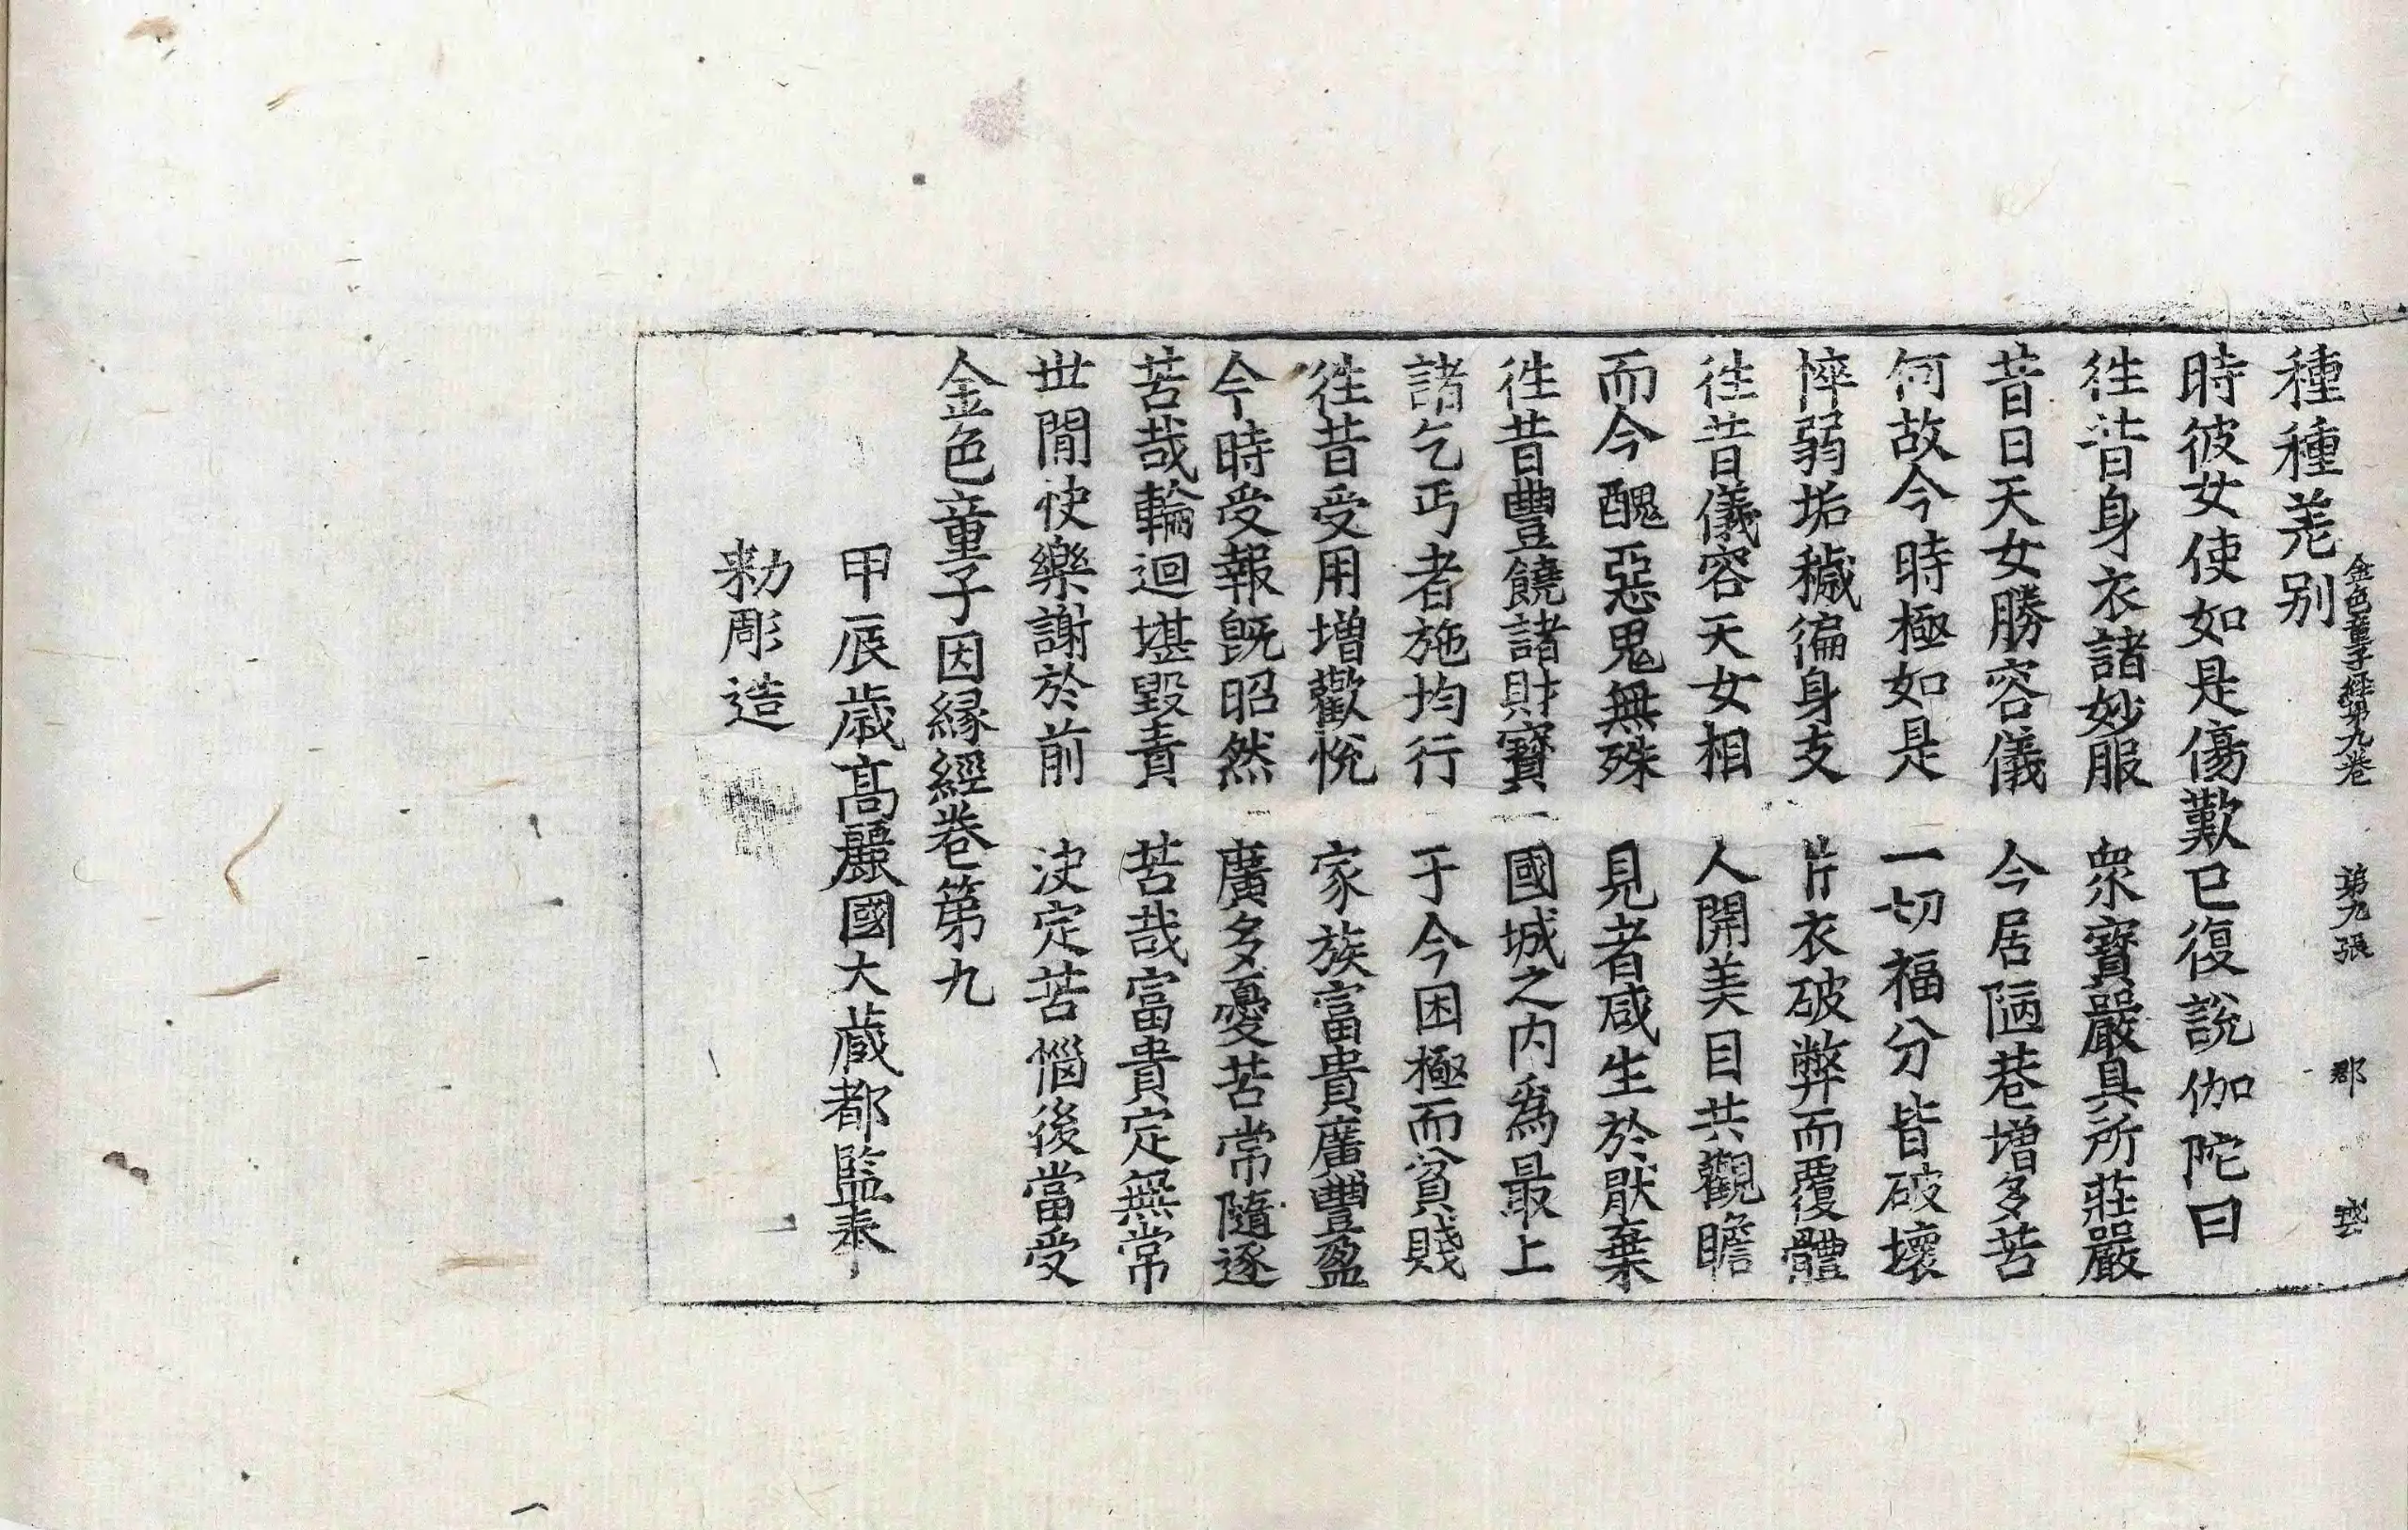 金色童子經第九卷 第九張 郡
種種差别
時彼女使如是傷歎已復說伽陀曰
徃昔身衣諸妙服 衆寶嚴具所莊嚴
昔日天女勝容儀 今居陋巷增多苦
何故今時極如是 一切福分皆破壞
悴弱垢穢徧身支 片衣破弊而覆體
徃昔儀容天女相 人開美目共觀瞻
而今醜惡鬼無殊 見者咸生於猒棄
徃昔豊饒諸財寶 國城之内爲最上
諸乞丐者施均行 于今困極而貧賤
徃昔受用增歡悅 家族富貴廣豊盈
今時受報旣昭然 廣多憂苦常隨逐
苦哉輪迴堪毀責 苦哉富貴定無常
世閒快樂謝於前 决定苦惱後當受
金色童子因縁經卷第九
甲辰歳高麗國大藏都監奉
勑彫造